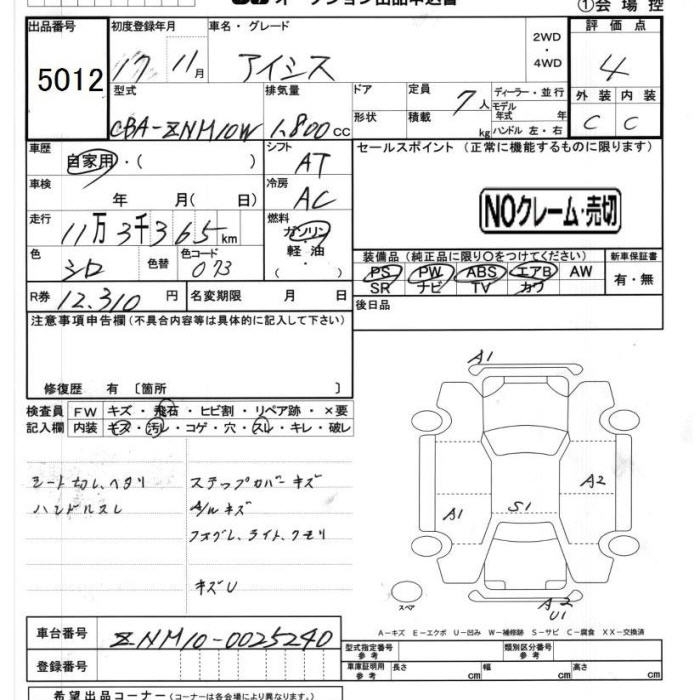 オークション出品申込書
①会場控
出品番号
5012
初度登録年月
17 11月
車名・グレード
アイシス
2WD
・
4WD
評価点
4
型式
CBA-ZNM10W
排気量
1,800cc
ドア
形状
定員
7人
積載
kg
ディーラー・並行
モデル年式 年
ハンドル 左・右
外装 内装
C C
車歴
自家用・( )
シフト
AT
車検
年 月( 日)
冷房
AC
走行
11万3千365km
燃料
ガソリン
軽油
( )
色
シロ
色替
色コード
073
セールスポイント(正常に機能するものに限ります)
NOクレーム・売切
装備品(純正品に限り○をつけてください)
PS PW ABS エアB AW
SR ナビ TV カワ
新車保証書
有・無
R券 12,310円
名変期限 月 日
後日品
注意事項申告欄(不具合内容等は具体的に記入して下さい)
修復歴 有〔箇所 〕
検査員記入欄
FW キズ・飛石・ヒビ割・リペア跡・×要
内装 キズ・汚レ・コゲ・穴・スレ・キレ・破レ
シート切レ、ヘタリ
ハンドルスレ
ステップカバーキズ
A/Wキズ
フォグL、ライト、クモリ
キズU
A1
A1
S1
A2
A2
U1
スペア
A-キズ E-エクボ U-凹み W-補修跡 S-サビ C-腐食 XX-交換済
車台番号
ZNM10-0025240
登録番号
型式指定番号
参考
類別区分番号
参考
車庫証明用
参考
長さ cm
幅 cm
高さ cm
希望出品コーナー(コーナーは各会場により異なります)